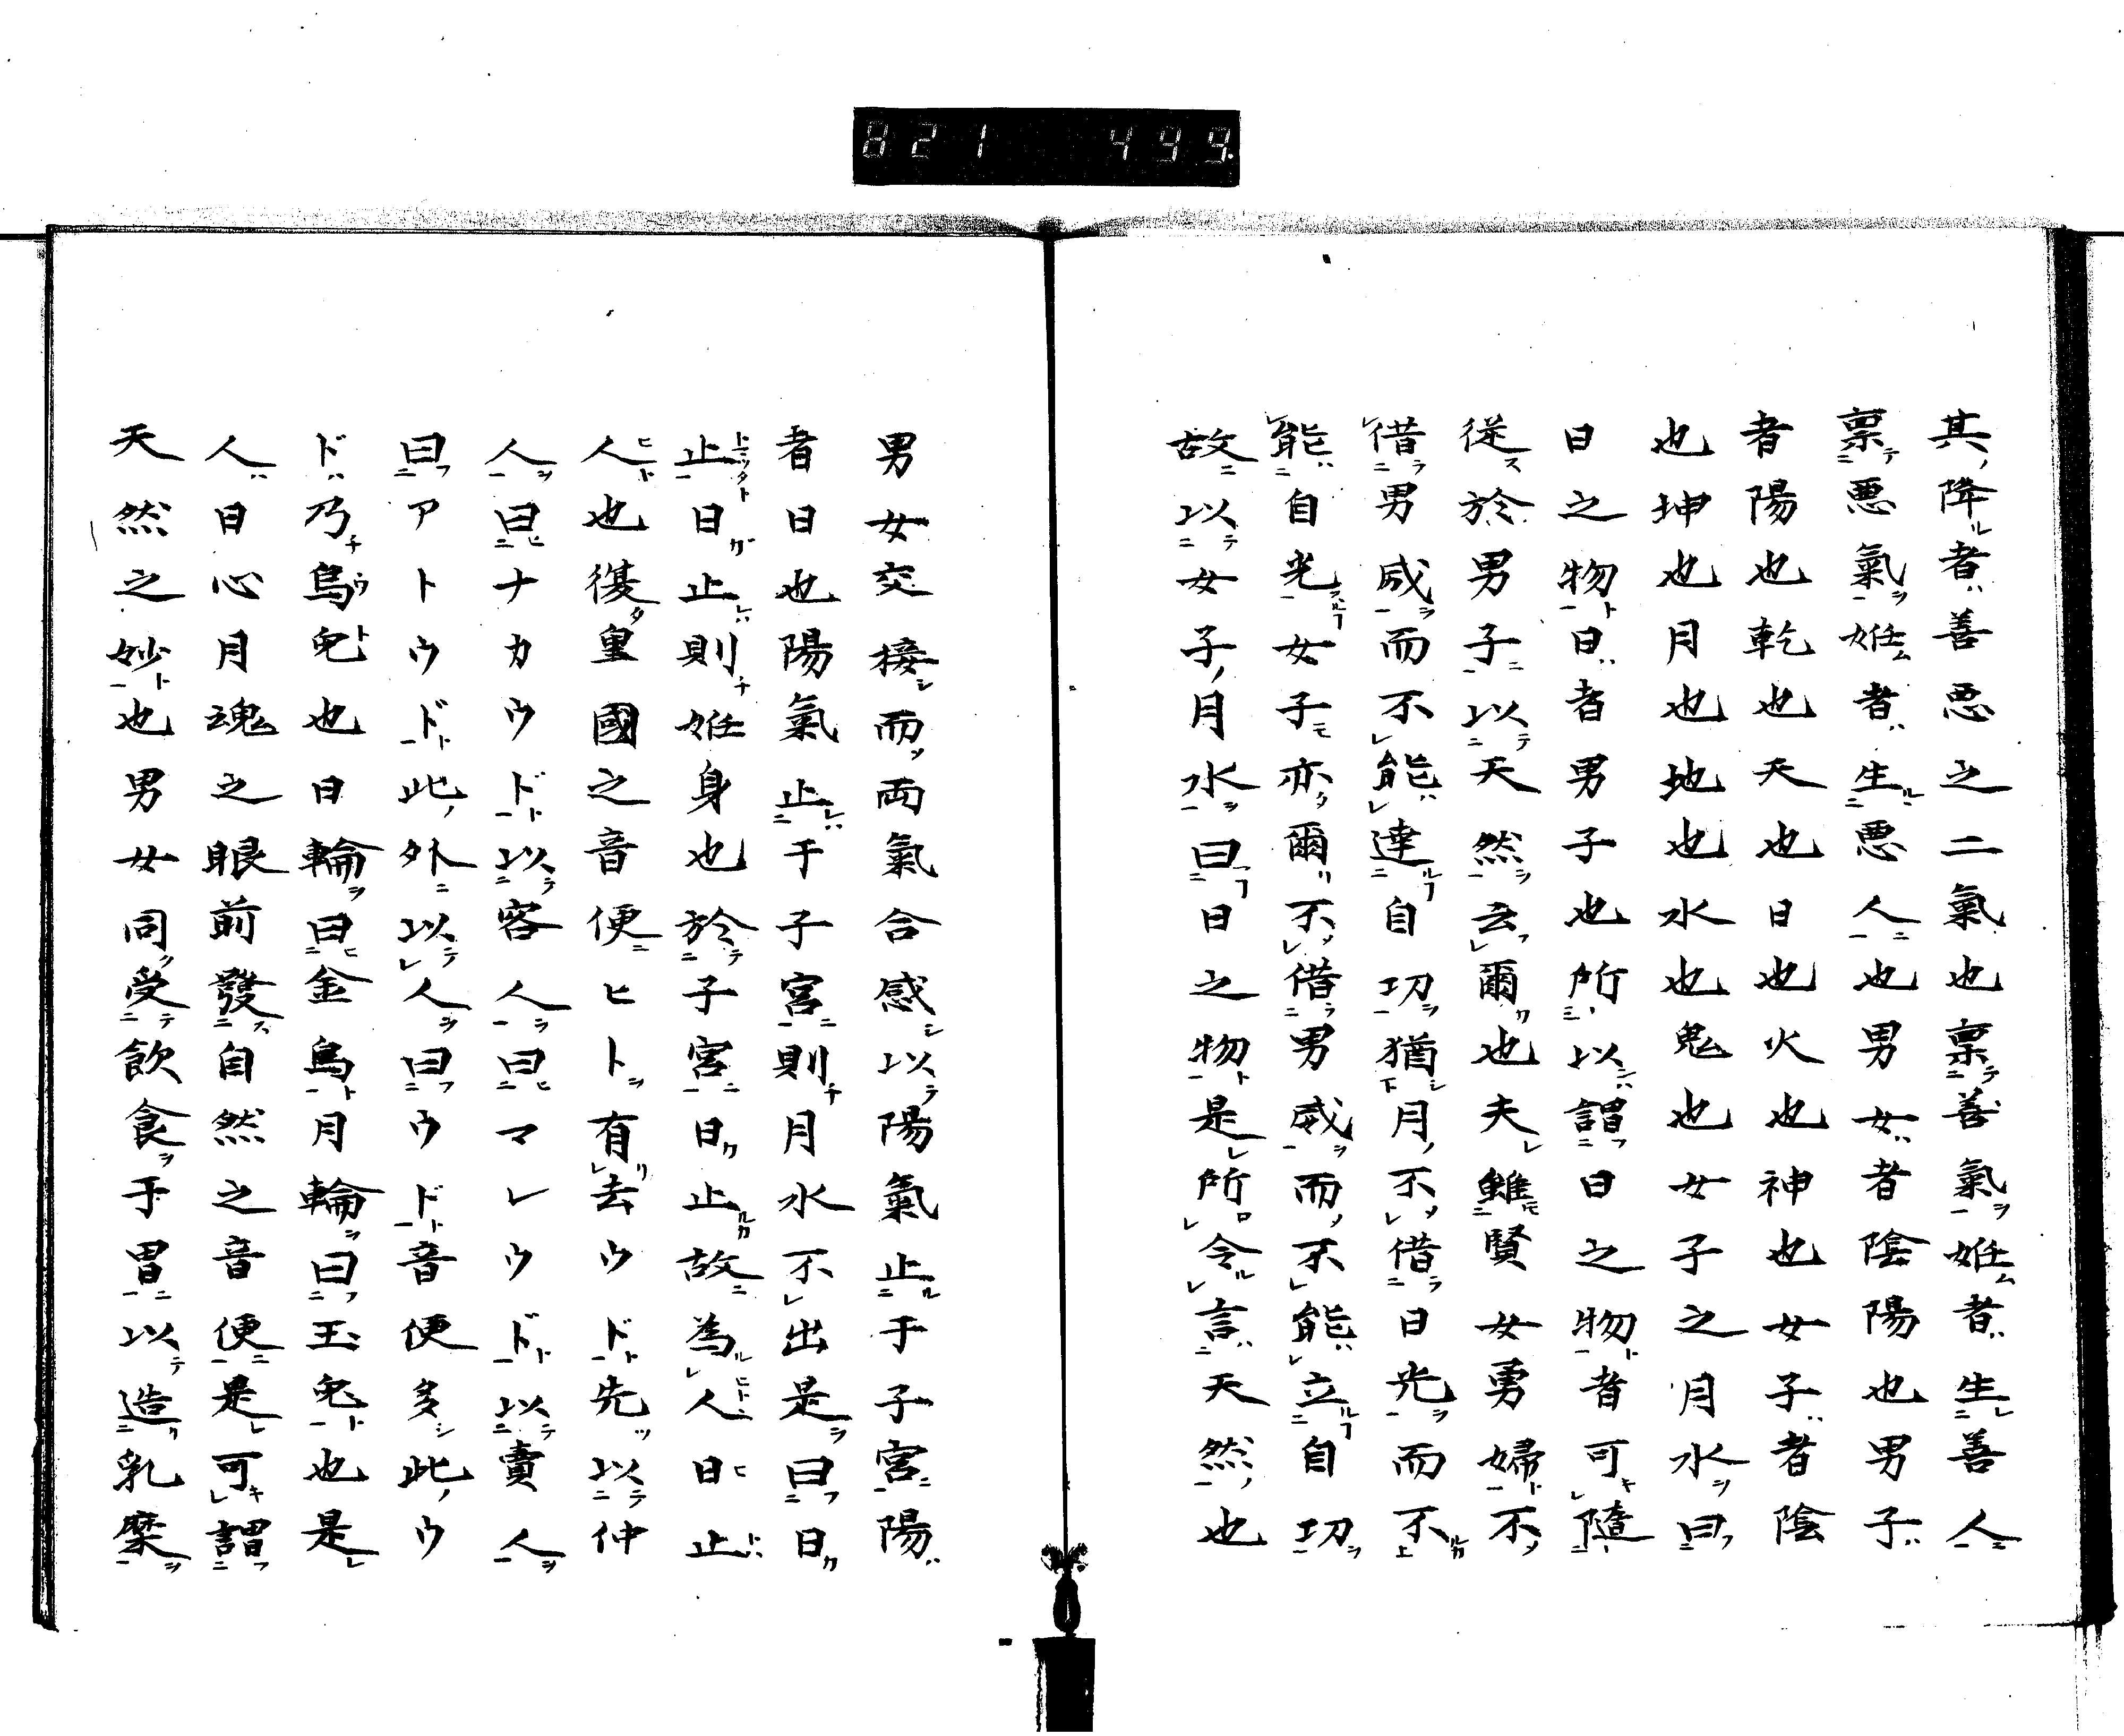 821 499
其降者善悪之二氣也稟善氣妊者生善人
稟悪氣妊者生悪人也男女者陰陽也男子
者陽也乾也天也日也火也神也女子者陰
也坤也月也地也水也鬼也女子之月水曰
日之物日者男子也所以謂日之物者可隨
從於男子以天然云爾也夫雖賢女勇婦不
借男威而不能達自功猶月不借日光而不
能自光女子亦爾不借男威而不能立自功
故以女子月水曰日之物是所令言天然也
男女交接而両氣合感以陽氣止于子宮陽
者日也陽氣止于子宮則月水不出是曰日
止日止則妊身也於子宮日止故為人日止
人也復皇國之音便ヒト有去ウド先以仲
人曰ナカウド以客人曰マレウド以賣人
曰アトウド此外以人曰ウド音便多此ウ
ド乃烏兎也日輪曰金烏月輪曰玉兎也是
人日心月魂之眼前發自然之音便是可謂
天然之妙也男女同受飲食于胃以造乳糜